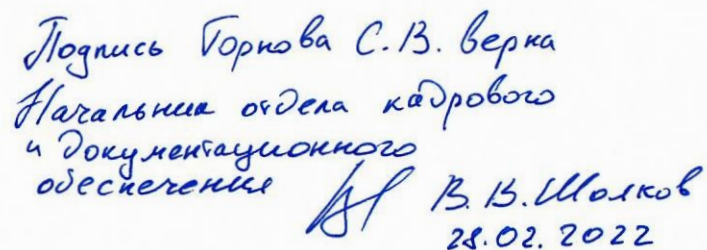 Подпись Горнова С.В. верна
Начальник отдела кадрового
и документационного
обеспечения
В.В. Шолков
28.02.2022